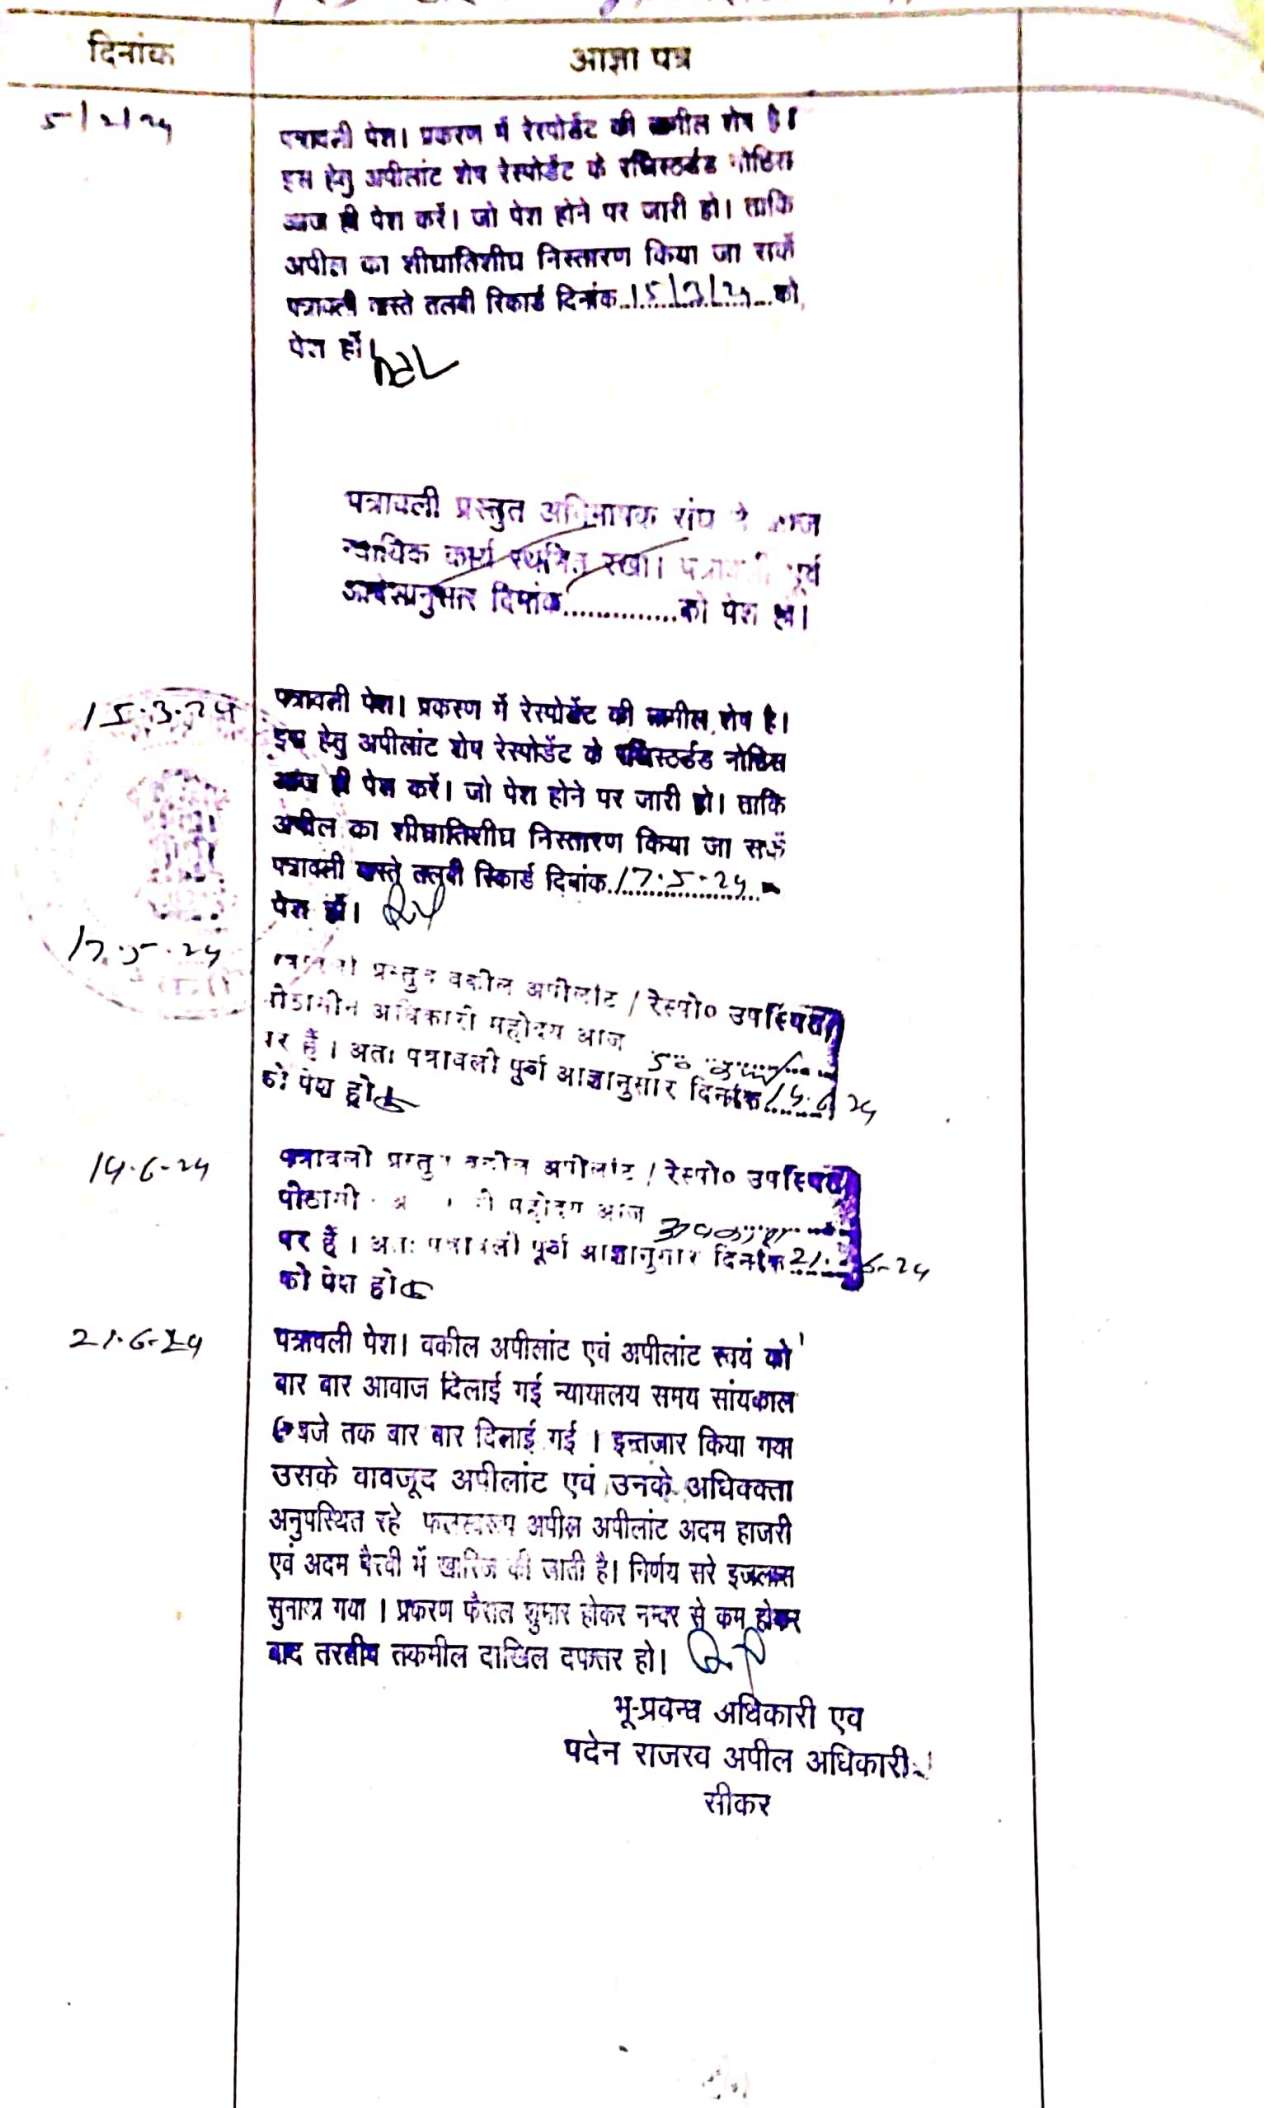 दिनांक
आज्ञा पत्र
5/2/24
पत्रावली पेश। प्रकरण में रेस्पोडेंट की तामील शेष है।
इस हेतु अपीलांट शेष रेस्पोडेंट के रजिस्टर्डड नोटिस
आज ही पेश करें। जो पेश होने पर जारी हो। ताकि
अपील का शीघ्रातिशीघ्र निस्तारण किया जा सकें
पत्रावली वास्ते तलबी रिकार्ड दिनांक 15/3/24 को
पेश हों।
पत्रावली प्रस्तुत अभिभाषक संघ ने आज
न्यायिक कार्य स्थगित रखा। पत्रावली पूर्व
आदेशानुसार दिनांक..............को पेश हो।
15.3.24
पत्रावली पेश। प्रकरण में रेस्पोर्डेट की तामील शेष है।
इस हेतु अपीलांट शेष रेस्पोर्डेट के रजिस्टर्डड नोटिस
आज ही पेश करें। जो पेश होने पर जारी हो। ताकि
अपील का शीघ्रातिशीघ्र निस्तारण किया जा सकें
पत्रावली वास्ते तलबी रिकार्ड दिनांक 17.5.24
पेश हों।
17.5.24
पत्रावली प्रस्तुत वकील अपीलांट / रेस्पो० उपस्थित
पीठासीन अधिकारी महोदय आज
पर हैं। अतः पत्रावली पुर्व आज्ञानुसार दिनांक 14.6.24
को पेश हो
14.6-24
पत्रावली प्रस्तुत वकील अपीलांट / रेस्पो० उपस्थित
पीठासीन अधिकारी महोदय आज अवकाश
पर हैं। अतः पत्रावली पूर्व आज्ञानुसार दिनांक 21.6-24
को पेश हो
21.6-24
पत्रावली पेश। वकील अपीलांट एवं अपीलांट स्वयं को
बार बार आवाज दिलाई गई न्यायालय समय सांयकाल
6 बजे तक बार बार दिलाई गई । इन्तजार किया गया
उसके वावजूद अपीलांट एवं उनके अधिवक्ता
अनुपस्थित रहे फलस्वरूप अपील अपीलांट अदम हाजरी
एवं अदम पैरवी में खारिज की जाती है। निर्णय सरे इजलास
सुनाया गया । प्रकरण फैसल शुमार होकर नम्बर से कम होकर
बाद तरतीब तकमील दाखिल दफ्तर हो।
भू-प्रवन्ध अधिकारी एव
पदेन राजस्व अपील अधिकारी
सीकर